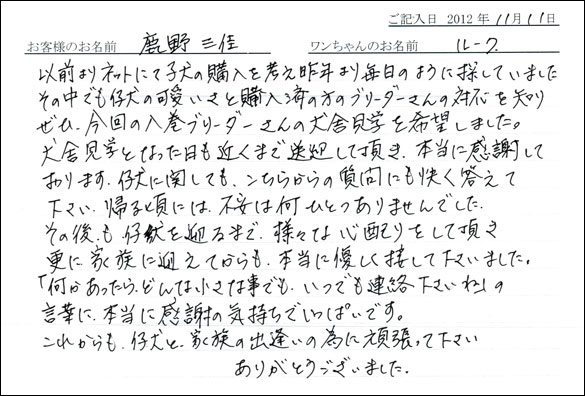 ご記入日 2012年11月11日
お客様のお名前 鹿野 三佳 ワンちゃんのお名前 ルーク
以前よりネットにて子犬の購入を考え昨年より毎日のように探していました
その中でも仔犬の可愛いさと購入済の方のブリーダーさんの対応を知り
ぜひ、今回の八巻ブリーダーさんの犬舎見学を希望しました。
犬舎見学となった日も近くまで送迎して頂き、本当に感謝して
おります。仔犬に関しても、こちらからの質問にも快く答えて
下さい、帰る頃には、不安は何ひとつありませんでした。
その後も仔犬を迎るまで、様々な心配りをして頂き
更に家族に迎えてからも、本当に優しく接して下さいました。
「何かあったら、どんな小さな事でも、いつでも連絡下さいね」の
言葉に、本当に感謝の気持ちでいっぱいです。
これからも、仔犬と、家族の出逢いの為に頑張って下さい
ありがとうございました。